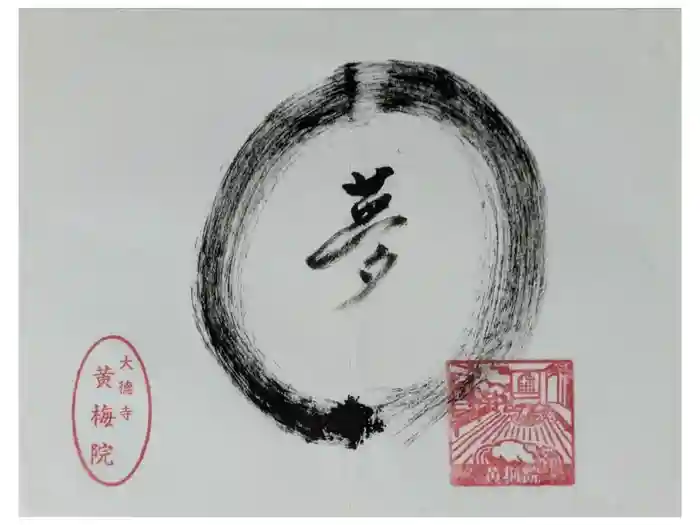 夢
大徳寺
黄梅院
黄梅院